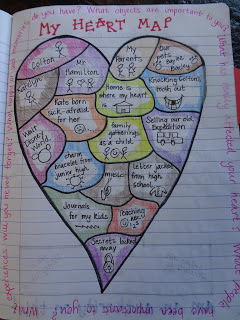 do you have? What objects are important to you?
MY HEART MAP
Colton
Katelyn
Mr.
Hamilton
My
Parents
Our
pets
Knocking Colton's
tooth out
Kate born
sick - afraid
for her
Home is
where my heart
is
Selling our old
Expedition
Walt
Disney
World
family
gatherings
as a child
charm
bracelet from
junior high
music
letter jacket
from high
school
Journals
for my kids
Teaching
Secrets locked
away
your heart? What
people
have been important to you? What
experiences will you never forget? What